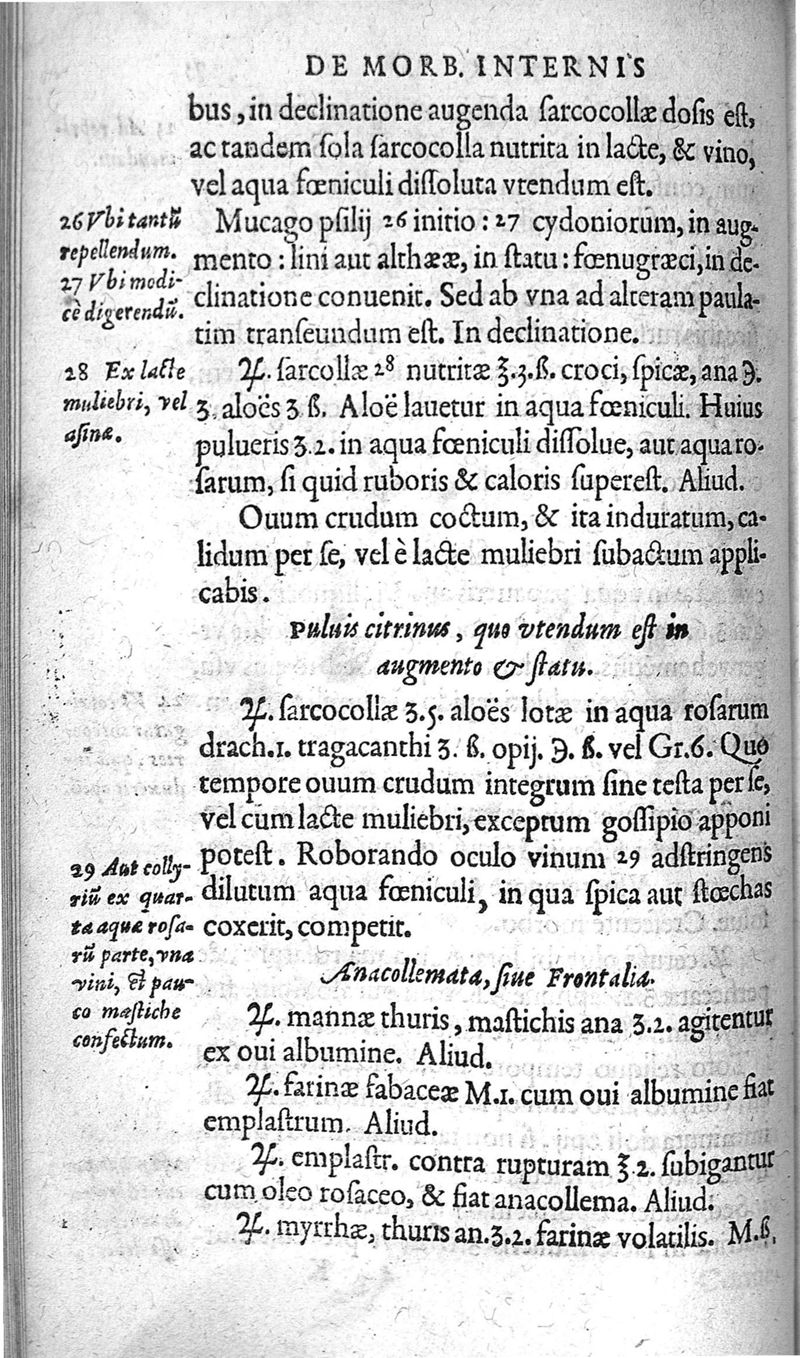 DE MORB. INTERNIS
bus, in declinatione augenda ſarcocollæ doſis eſt,
ac tandem ſola ſarcocolla nutrita in lacte, & vino,
vel aqua fœniculi diſſoluta vtendum eſt.
26 Vbi tantũ
repellendum.
27 Vbi modi-
cè digerendũ.
Mucago pſilij 26 initio : 27 cydoniorum, in aug-
mento : lini aut althææ, in ſtatu : fœnugræci, in de-
clinatione conuenit. Sed ab vna ad alteram paula-
tim tranſeundum eſt. In declinatione.
28 Ex lacte
muliebri, vel
aſinæ.
℞. ſarcollæ 28 nutritæ ʒ.3.ß. croci, ſpicæ, ana ℈.
ʒ. aloës ʒ ß. Aloë lauetur in aqua fœniculi. Huius
pulueris ʒ.2. in aqua fœniculi diſſolue, aut aqua ro-
ſarum, ſi quid ruboris & caloris ſupereſt. Aliud.
Ouum crudum coctum, & ita induratum, ca-
lidum per ſe, vel è lacte muliebri ſubactum appli-
cabis.
Puluis citrinus, quo vtendum eſt in
augmento & ſtatu.
℞. ſarcocollæ ʒ.5. aloës lotæ in aqua roſarum
drach.1. tragacanthi ʒ. ß. opij. ℈. ß. vel Gr.6. Quo
tempore ouum crudum integrum ſine teſta per ſe,
vel cum lacte muliebri, exceptum goſſipio apponi
poteſt. Roborando oculo vinum 29 adſtringens
dilutum aqua fœniculi, in qua ſpica aut ſtœchas
coxerit, competit.
29 Aut colly-
riũ ex quar-
ta aquæ roſa-
rũ parte, vna
vini, & pau-
co maſtiche
confectum.
Anacollemata, ſiue Frontalia.
℞. mannæ thuris, maſtichis ana ʒ.2. agitentur
ex oui albumine. Aliud.
℞. farinæ fabaceæ M.1. cum oui albumine fiat
emplaſtrum. Aliud.
℞. emplaſtr. contra rupturam ℥.2. ſubigantur
cum oleo roſaceo, & fiat anacollema. Aliud.
℞. myrrhæ, thuris an.ʒ.2. farinæ volatilis. M.ß.